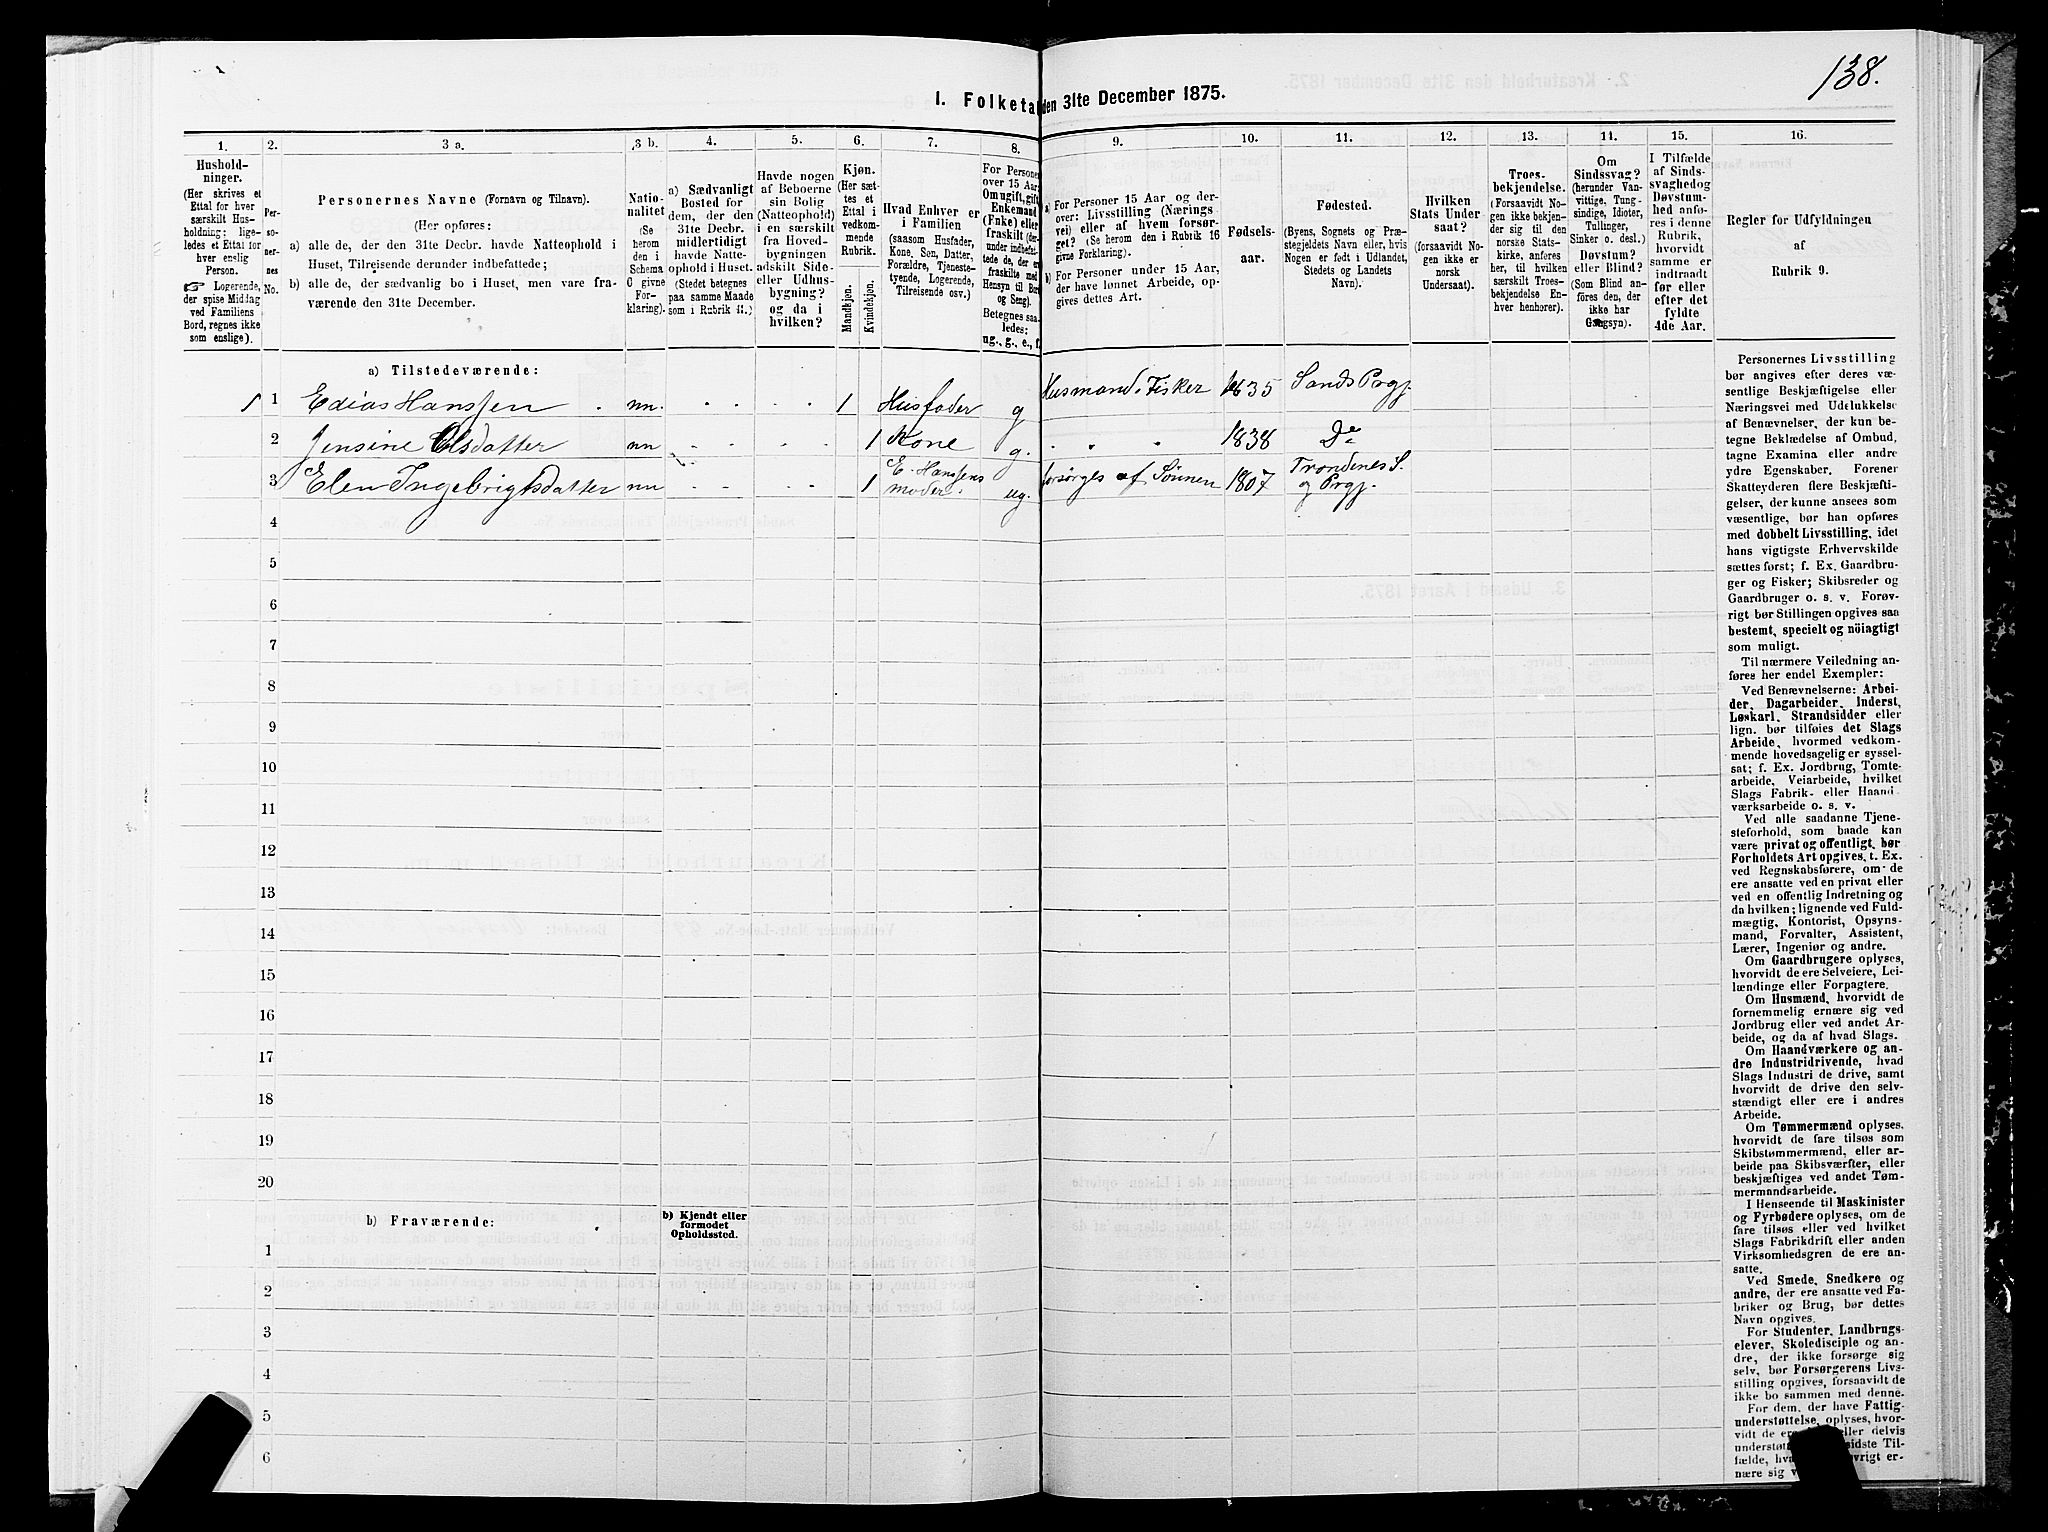 138.
I. Folketa den 31te December 1875.
1. 2. 3 a. 3 b. 4. 5. 6. 7. 8. 9. 10. 11. 12. 13. 14. 15. 16.
Hushold-
ninger.
(Her skrives et
Ettal for hver
særskilt Hus-
holdning; lige-
ledes et Ettal for
hver enslig
Person.
☞ Logerende,
der spise Middag
ved Familiens
Bord, regnes ikke
som enslige).
Per-
so-
ner-
nes
No.
Personernes Navne (Fornavn og Tilnavn).
(Her opføres:
a) alle de, der den 31te Decbr. havde Natteophold i
Huset, Tilreisende derunder indbefattede;
b) alle de, der sædvanlig bo i Huset, men vare fra-
værende den 31te December.
Natio-
nalitet
(Se
herom
den i
Schema
C givne
For-
klaring).
a) Sædvanligt
Bosted for
dem, der den
31te Decbr.
midlertidigt
havde Natte-
ophold i Huset.
(Stedet betegnes
paa samme Maade
som i Rubrik 11.)
Havde nogen
af Beboerne
sin Bolig
(Natteophold)
i en særskilt
fra Hoved-
bygningen
adskilt Side-
eller Udhus-
bygning?
og da i
hvilken?
Kjøn.
(Her sæt-
tes et
Ettal i
vedkom-
mende
Rubrik.
Mandkjøn.
Kvindekjøn.
Hvad Enhver er
i Familien
(saasom Husfader,
Kone, Søn, Datter,
Forældre, Tjeneste-
tyende, Logerende,
Tilreisende osv.)
For Personer
over 15 Aar:
Om ugift, gift,
Enkemand
(Enke) eller
fraskilt (der-
under indbefat-
tede de, der ere
fraskilte med
Hensyn til Bord
og Seng).
Betegnes saa-
ledes:
ug., g., e., f.
a) For Personer 15 Aar og der-
over: Livsstilling (Nærings
vei) eller af hvem forsør-
get? (Se herom den i Rubrik 16
givne Forklaring).
b) For Personer under 15 Aar,
der have lønnet Arbeide, op-
gives dettes Art.
Fødsels-
aar.
Fødested.
(Byens, Sognets og Præ-
stegjeldets Navn eller, hvis
Nogen er født i Udlandet,
Stedets og Landets
Navn).
Hvilken
Stats Under
saat?
(forsaavidt No-
gen ikke er
norsk
Undersaat).
Troes-
bekjendelse.
(Forsaavidt No-
gen ikke bekjen-
der sig til den
norske Stats-
kirke, anføres
her, til hvilken
særskilt Troes-
bekjendelse En-
hver henhorer).
Om
Sindssvag?
(herunder Van-
vittige, Tung-
sindige, Idioter,
Tullinger,
Sinker o. desl.)
Døvstum?
eller Blind?
(Som Blind an-
føres den, der
ikke har
Gangsyn).
I Tilfælde
af Sinds-
svaghedog
Døvstum-
hed anfø-
res i denne
Rubrik,
hvorvidt
samme er
indtraadt
før eller
efter det
fyldte
4de Aar.
Regler for Udfyldningen
af
Rubrik 9.
a) Tilstedeværende:
1 1 Edias Hanssen nn. 1 Husfader g Husmand i Fisker 1835 Sands Prgj.
2 Jensine Olsdatter nn 1 Kone g. " " 1838 Do
3 Elen Ingebrigtsdatter nn 1 E. Hanssens moder. ug. forsørges af Sønnen 1807 Trondenes S. og Prgj.
4
5
6
7
8
9
10
11
12
13
14
15
16
17
18
19
20
b) Fraværende:
b) Kjendt eller
formodet
Opholdssted.
1
2
3
4
5
6
Personernes Livsstilling
bør angives efter deres væ-
sentlige Beskjæftigelse eller
Næringsvei med Udelukkelse
af Benævnelser, der kun be-
tegne Beklædelse af Ombud,
tagne Examina eller andre
ydre Egenskaber. Forener
Skatteyderen flere Beskjæfti-
gelser, der kunne ansees som
væsentlige, bør han opføres
med dobbelt Livsstilling, idet
hans vigtigste Erhvervskilde
sættes først; f. Ex. Gaardbru-
ger og Fisker; Skibsreder og
Gaardbruger o. s. v. Forøv-
rigt bør Stillingen opgives saa
bestemt, specielt og nöiagtigt
som muligt.
Til nærmere Veiledning an-
føres her endel Exempler:
Ved Benævnelserne: Arbei-
der, Dagarbeider, Inderst,
Løskarl, Strandsidder eller
lign. bør tilføies det Slags
Arbeide, hvormed vedkom-
mende hovedsagelig er syssel-
sat; f. Ex. Jordbrug, Tomte-
arbeide, Veiarbeide, hvilket
Slags Fabrik- eller Haand-
værksarbeide o. s. v.
Ved alle saadanne Tjene-
steforhold, som baade kan
være privat og offentligt, bør
Forholdets Art opgives, t. Ex.
ved Regnskabsførere, om de
ere ansatte ved en privat eller
ved en offentlig Indretning og
da hvilken; lignende ved Fuld-
mægtig, Kontorist, Opsyns-
mand, Forvalter, Assistent,
Lærer, Ingeniør og andre.
Om Gaardbrugere oplyses,
hvorvidt de ere Selveiere, Lei-
lændinge eller Forpagtere.
Om Husmænd, hvorvidt de
fornemmelig ernære sig ved
Jordbrug eller ved andet Ar-
beide, og da af hvad Slags.
Om Haandværkere og an-
dre Industridrivende, hvad
Slags Industri de drive, samt
hvorvidt de drive den selv-
stændigt eller ere i andres
Arbeide.
Om Tømmermænd oplyses,
hvorvidt de fare tilsøs som
Skibstømmermænd, eller ar-
beide paa Skibsværfter, eller
beskjæftiges ved andet Tøm-
mermandsarbeide.
I Henseende til Maskinister
og Fyrbødere oplyses, om de
fare tilsøs eller ved hvilket
Slags Fabrikdrift eller anden
Virksomhedsgren de ere an-
satte.
Ved Smede, Snedkere og
andre, der ere ansatte ved Fa-
briker og Brug, bør dettes
Navn opgives.
For Studenter, Landbrugs-
elever, Skoledisciple og an-
dre, der ikke forsørge sig
selv, bør Forsørgerens Livs-
stilling opgives, forsaavidt de
ikke bo sammen med denne.
For dem, der have Fattig-
understøttelse, oplyses, hvor-
vidt de ere eller delvis
understøt sidste Til-
fælde, hv øvrigt er-
nære sig